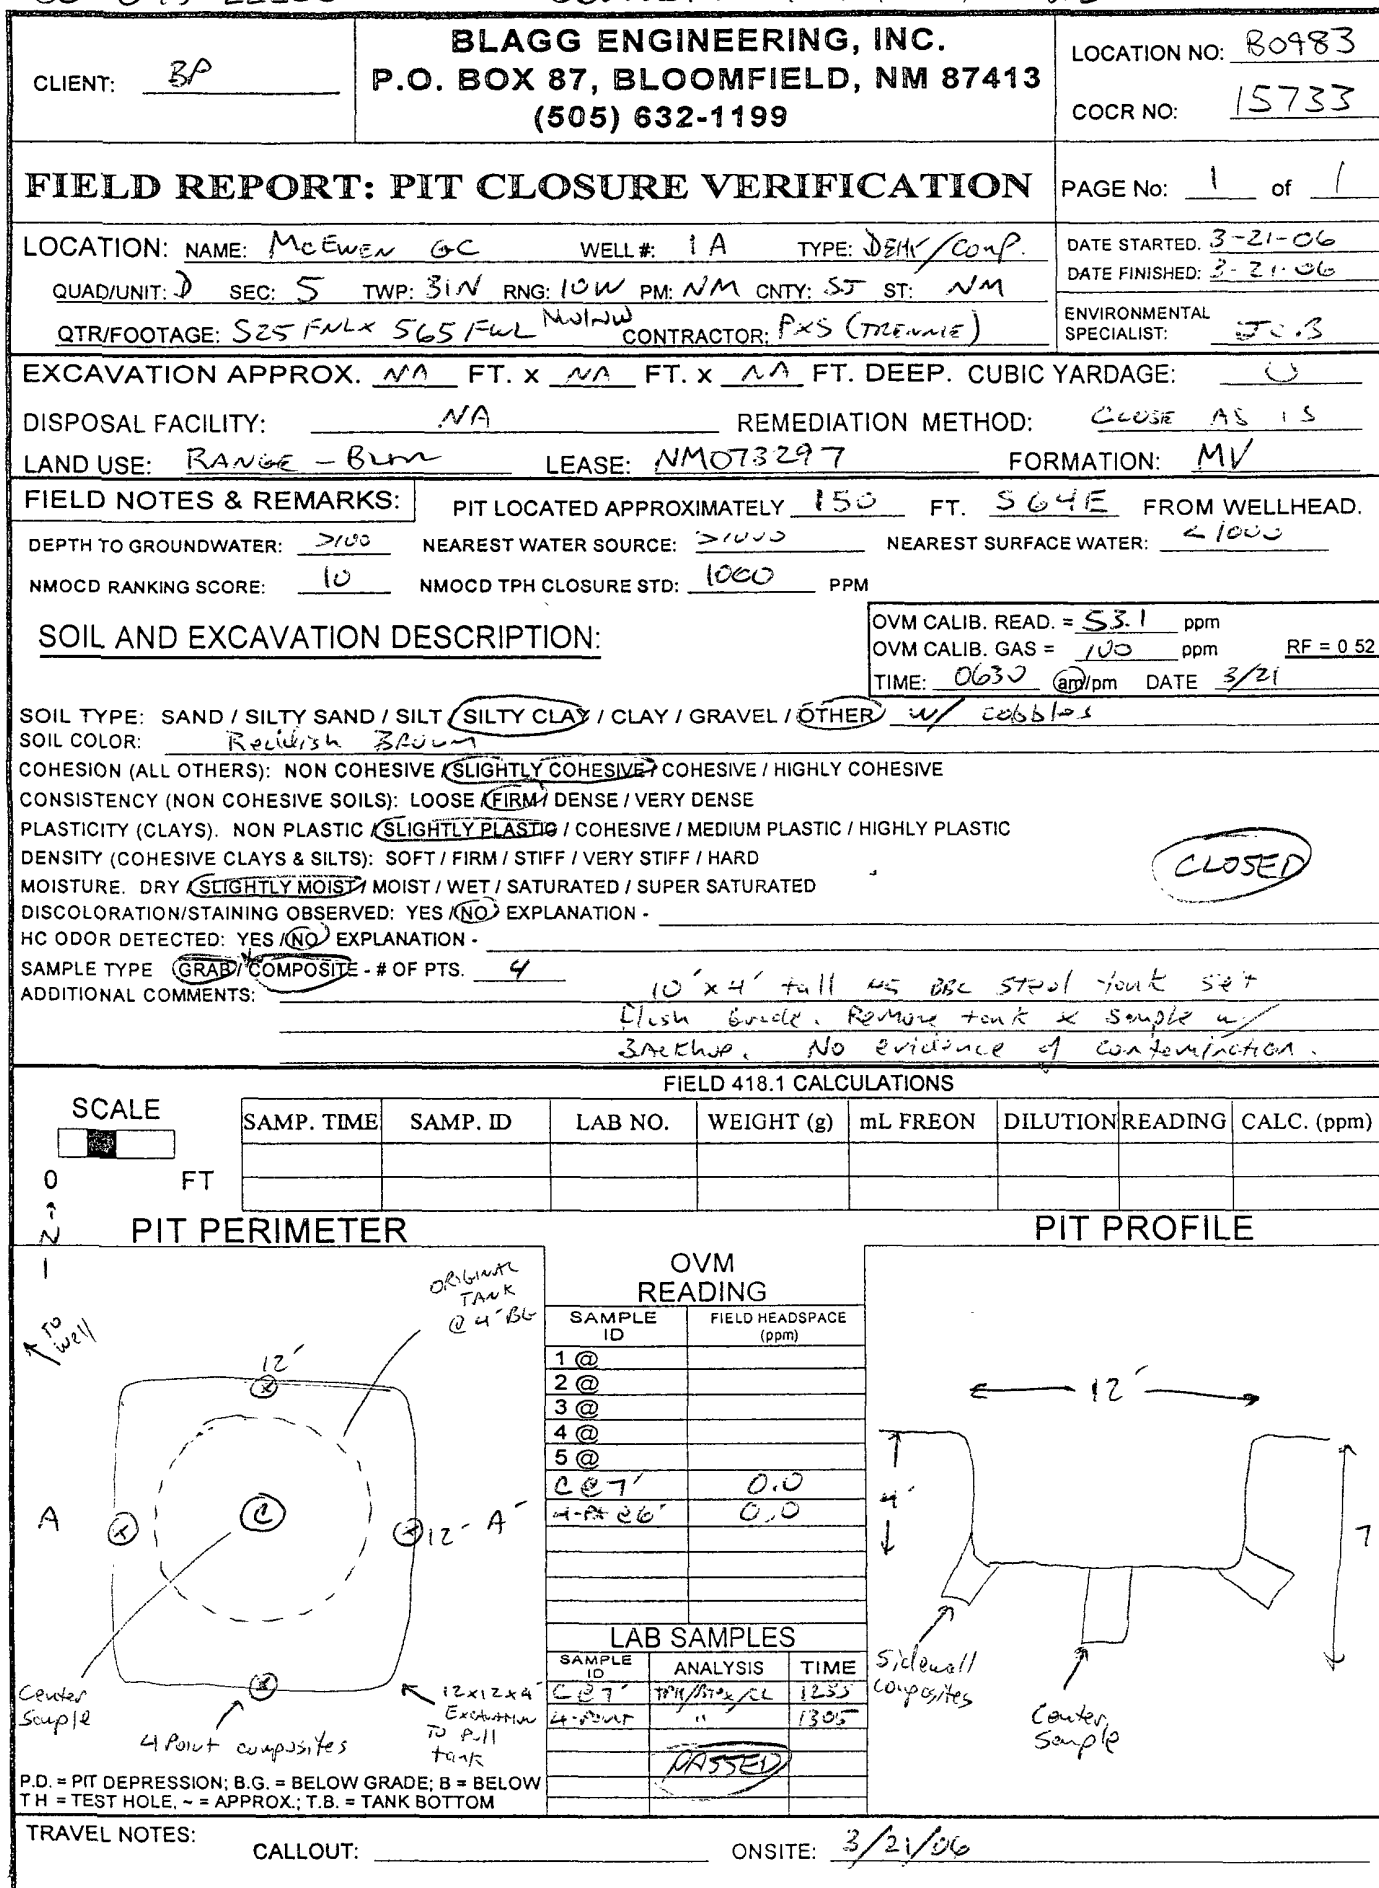 BLAGG ENGINEERING, INC.
P.O. BOX 87, BLOOMFIELD, NM 87413
(505) 632-1199
CLIENT: BP
LOCATION NO: B0983
COCR NO: 15733
FIELD REPORT: PIT CLOSURE VERIFICATION
PAGE No: 1 of 1
LOCATION: NAME: McEwen GC WELL #: 1A TYPE: DEHY/COMP.
DATE STARTED. 3-21-06
DATE FINISHED: 3-21-06
QUAD/UNIT: D SEC: 5 TWP: 31N RNG: 10W PM: NM CNTY: SJ ST: NM
QTR/FOOTAGE: 525 FNL x 565 FWL NW/NW CONTRACTOR: P&S (TRENNIE)
ENVIRONMENTAL SPECIALIST: JCB
EXCAVATION APPROX. NA FT. x NA FT. x NA FT. DEEP. CUBIC YARDAGE: 0
DISPOSAL FACILITY: NA REMEDIATION METHOD: CLOSE AS IS
LAND USE: RANGE - BLM LEASE: NM073297 FORMATION: MV
FIELD NOTES & REMARKS: PIT LOCATED APPROXIMATELY 150 FT. S64E FROM WELLHEAD.
DEPTH TO GROUNDWATER: >100 NEAREST WATER SOURCE: >1000 NEAREST SURFACE WATER: <1000
NMOCD RANKING SCORE: 10 NMOCD TPH CLOSURE STD: 1000 PPM
SOIL AND EXCAVATION DESCRIPTION:
OVM CALIB. READ. = 53.1 ppm
OVM CALIB. GAS = 100 ppm RF = 0 52
TIME: 0630 am/pm DATE 3/21
SOIL TYPE: SAND / SILTY SAND / SILT / SILTY CLAY / CLAY / GRAVEL / OTHER w/ cobbles
SOIL COLOR: Reddish Brown
COHESION (ALL OTHERS): NON COHESIVE / SLIGHTLY COHESIVE / COHESIVE / HIGHLY COHESIVE
CONSISTENCY (NON COHESIVE SOILS): LOOSE / FIRM / DENSE / VERY DENSE
PLASTICITY (CLAYS). NON PLASTIC / SLIGHTLY PLASTIC / COHESIVE / MEDIUM PLASTIC / HIGHLY PLASTIC
DENSITY (COHESIVE CLAYS & SILTS): SOFT / FIRM / STIFF / VERY STIFF / HARD
MOISTURE. DRY / SLIGHTLY MOIST / MOIST / WET / SATURATED / SUPER SATURATED
CLOSED
DISCOLORATION/STAINING OBSERVED: YES / NO EXPLANATION -
HC ODOR DETECTED: YES / NO EXPLANATION -
SAMPLE TYPE GRAB / COMPOSITE - # OF PTS. 4
ADDITIONAL COMMENTS: 10' x 4' tall 45 BBL Steel tank set
Flush Grade. Remove tank & Sample w/
Backhoe. No evidence of contamination.
FIELD 418.1 CALCULATIONS
SCALE
0 FT
SAMP. TIME SAMP. ID LAB NO. WEIGHT (g) mL FREON DILUTION READING CALC. (ppm)
N
PIT PERIMETER
To well
ORIGINAL TANK @ 4' BG
12'
A
C
12'
A'
Center Sample
4 Point composites
12x12x4' Excavation To Pull tank
P.D. = PIT DEPRESSION; B.G. = BELOW GRADE; B = BELOW
T H = TEST HOLE, ~ = APPROX.; T.B. = TANK BOTTOM
OVM READING
SAMPLE ID FIELD HEADSPACE (ppm)
1 @
2 @
3 @
4 @
5 @
C @ 7' 0.0
4-Pt @ 6' 0.0
LAB SAMPLES
SAMPLE ID ANALYSIS TIME
C @ 7' TPH/BTEX/CL 1255
4-Point " 1305
PASSED
PIT PROFILE
12'
4'
7
Sidewall composites
Center Sample
TRAVEL NOTES: CALLOUT: ONSITE: 3/21/06